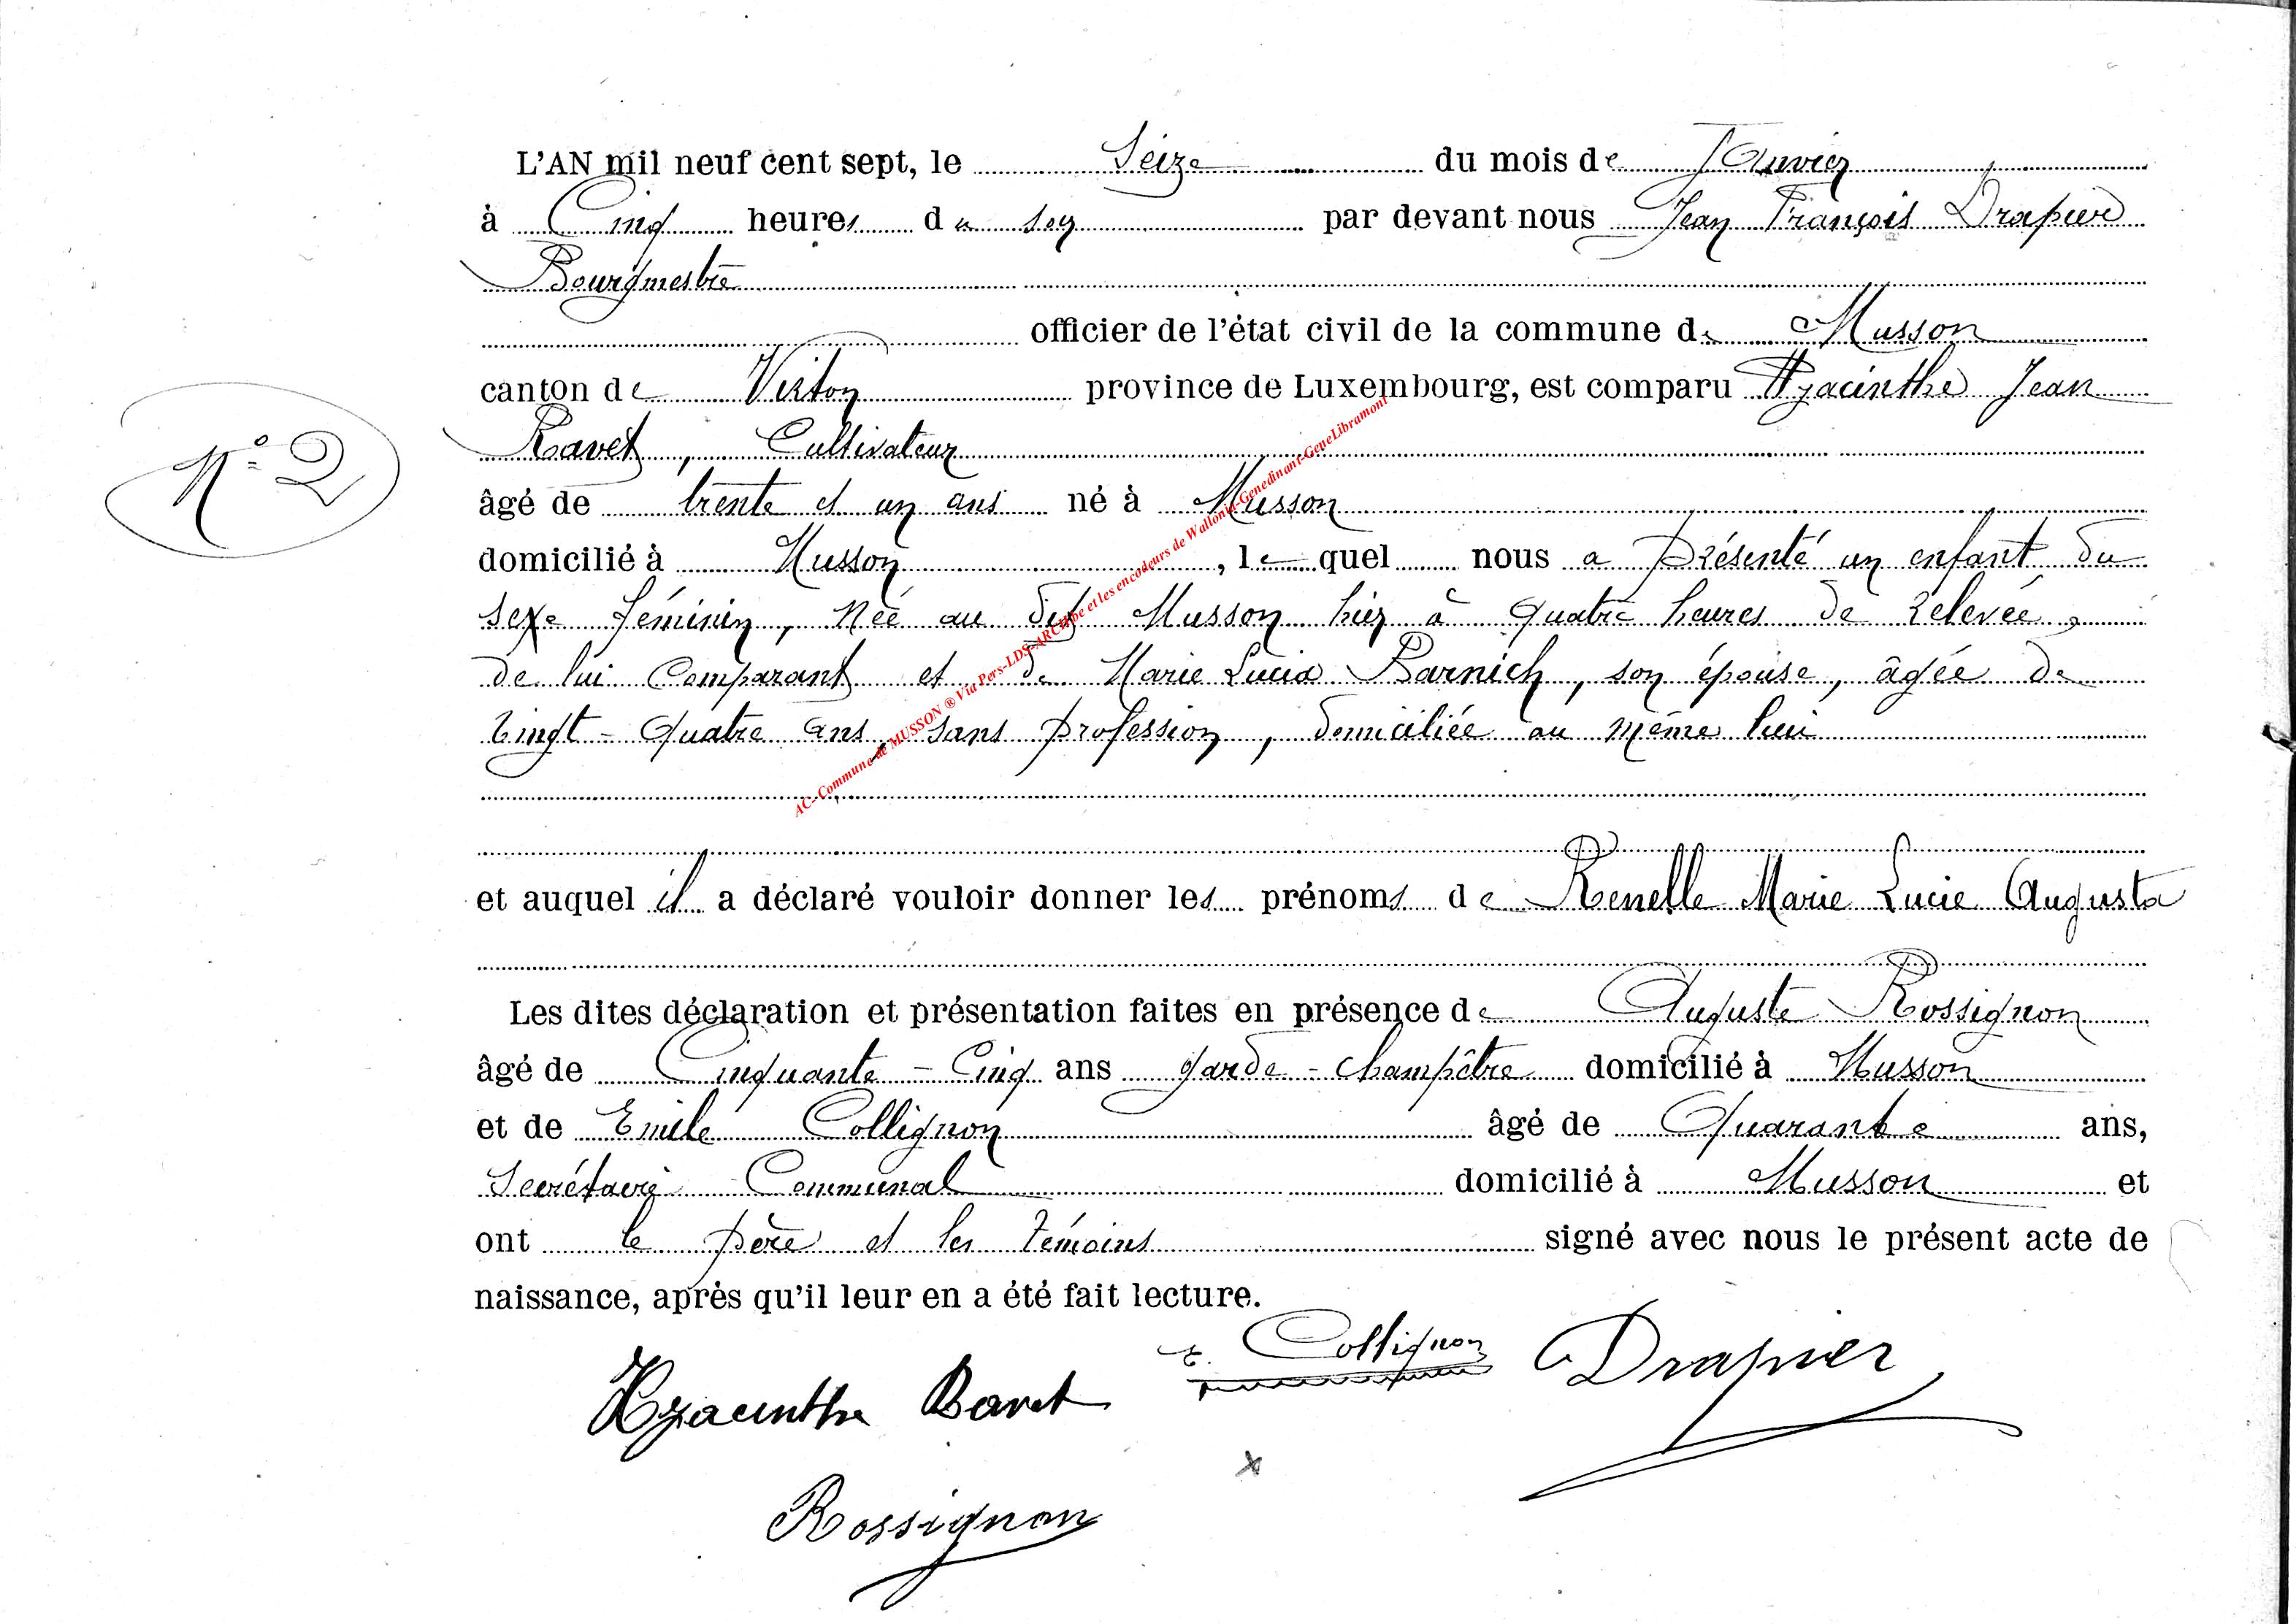 L'AN mil neuf cent sept, le Seize du mois de Janvier
à Cinq heures du soir par devant nous Jean François Drapier
Bourgmestre
officier de l'état civil de la commune de Musson
canton de Virton province de Luxembourg, est comparu Hyacinthe Jean
N° 2
Ravet, Cultivateur
âgé de trente et un ans né à Musson
domicilié à Musson, le quel nous a présenté un enfant du
sexe féminin, née au dit Musson hier à quatre heures de relevée,
de lui Comparant et de Marie Lucia Barnich, son épouse, âgée de
Vingt-quatre ans, sans profession, domiciliée au même lieu
AC-Commune de MUSSON ® Via Pers-LDS-ARCH.be et les encodeurs de Wallonia-Genedinant-GeneLibramont
et auquel il a déclaré vouloir donner les prénoms de Renelle Marie Lucie Augusta
Les dites déclaration et présentation faites en présence de Auguste Rossignon
âgé de Cinquante-Cinq ans garde-champêtre domicilié à Musson
et de Emile Collignon âgé de Quarante ans,
Secrétaire Communal domicilié à Musson et
ont le père et les témoins signé avec nous le présent acte de
naissance, après qu'il leur en a été fait lecture.
E. Collignon Drapier
Hyacinthe Ravet
Rossignon